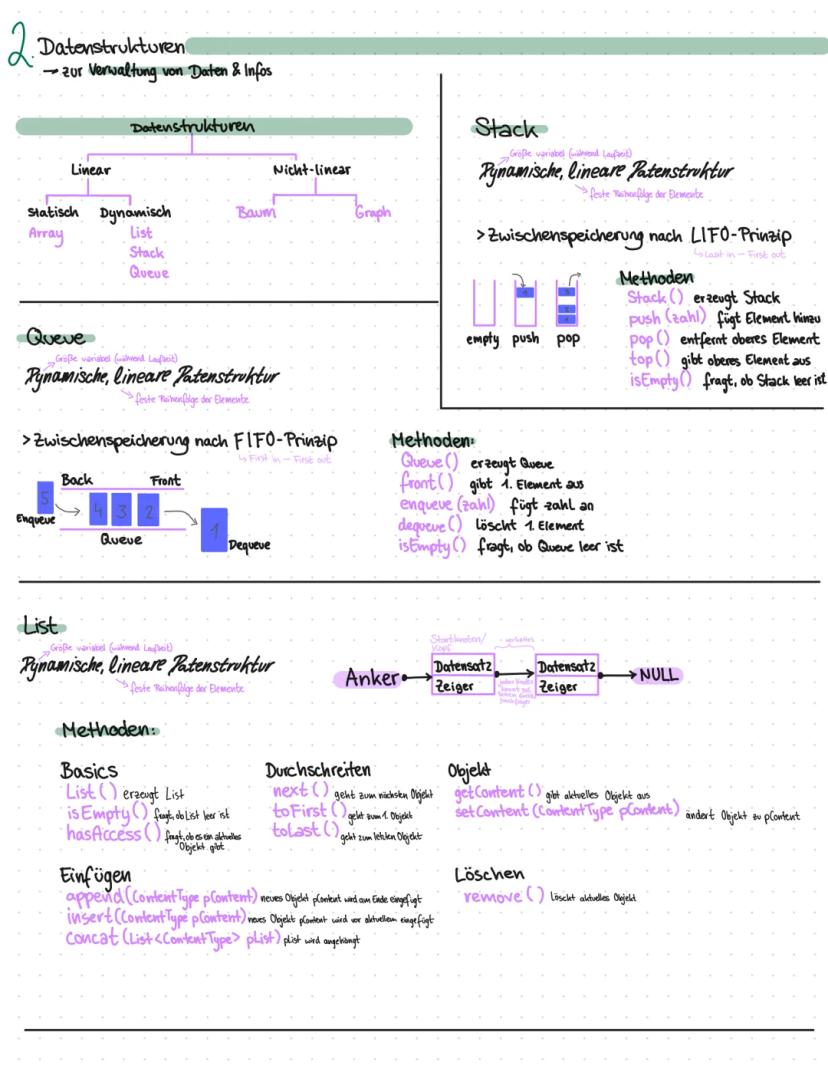 2. Datenstrukturen
→ zur Verwaltung von Daten & Infos
Datenstrukturen
Linear Nicht-linear
Statisch Dynamisch Baum Graph
Array List
Stack
Queue
Stack
Größe variabel (während Laufzeit)
Dynamische, lineare Datenstruktur
feste Reihenfolge der Elemente
> Zwischenspeicherung nach LIFO-Prinzip
↳ Last in – First out
empty push pop
Methoden
Stack() erzeugt Stack
push (zahl) fügt Element hinzu
pop() entfernt oberes Element
top() gibt oberes Element aus
isEmpty() fragt, ob Stack leer ist
Queue
Größe variabel (während Laufzeit)
Dynamische, lineare Datenstruktur
feste Reihenfolge der Elemente
> Zwischenspeicherung nach FIFO-Prinzip
↳ First in – First out
Back Front
5 4 3 2 1
Enqueue Queue Dequeue
Methoden:
Queue() erzeugt Queue
front() gibt 1. Element aus
enqueue (zahl) fügt zahl an
dequeue() löscht 1. Element
isEmpty() fragt, ob Queue leer ist
List
Größe variabel (während Laufzeit)
Dynamische, lineare Datenstruktur
feste Reihenfolge der Elemente
Startknoten/
Kopf
verkettet
Anker Datensatz Datensatz NULL
Zeiger Zeiger
Methoden:
Basics
List() erzeugt List
isEmpty() fragt, ob List leer ist
hasAccess() fragt, ob es ein aktuelles
Objekt gibt
Durchschreiten
next() geht zum nächsten Objekt
toFirst() geht zum 1. Objekt
toLast() geht zum letzten Objekt
Objekt
getContent() gibt aktuelles Objekt aus
setContent (ContentType pContent) ändert Objekt zu pContent
Einfügen
append(ContentType pContent) neues Objekt pContent wird am Ende eingefügt
insert(ContentType pContent) neues Objekt pContent wird vor aktuellem eingefügt
concat (List<ContentType> pList) pList wird angehängt
Löschen
remove() löscht aktuelles Objekt